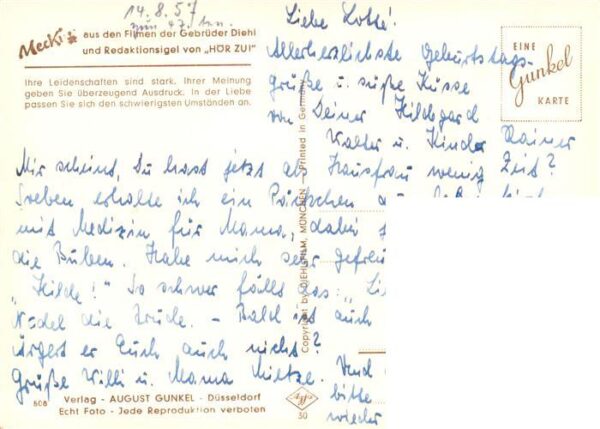 14.8.57
zum 47. 
Mecki aus den Filmen der Gebrüder Diehl
und Redaktionsigel von „HÖR ZU!"
Ihre Leidenschaften sind stark. Ihrer Meinung
geben Sie überzeugend Ausdruck. In der Liebe
passen Sie sich den schwierigsten Umständen an.
EINE
Gunkel
KARTE
Liebe Lotte!
Allerherzlichste Geburtstags-
grüße u. süße Küsse
von Deiner Hildegard
Walter u. Kinder Rainer
Mir scheint, Du hast jetzt als Hausfrau wenig Zeit?
Soeben erhalte ich ein Päckchen
mit Medizin für Mama, dahin
die Buben. Habe mich sehr gefreu
„Hilde!" So schwer fällt das: „Li
Nadel die Brücke. - Bald ist auch
Ärgert er Euch auch nicht?
Grüße Willi u. Mama Mietze. Und
bitte
wieder
Copyright by DIEHLFILM, MÜNCHEN · Printed in Germany
608
Verlag - AUGUST GUNKEL - Düsseldorf
Echt Foto - Jede Reproduktion verboten
Agfa
30